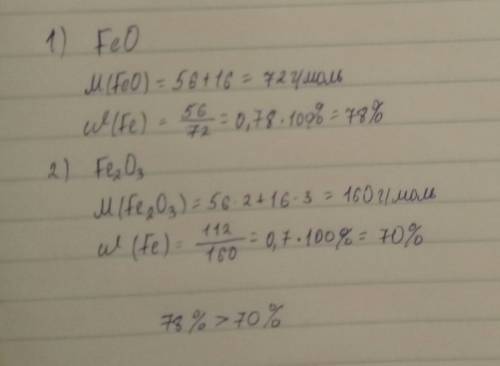 1) FeO
M(FeO) = 56+16 = 72 г/моль
ω(Fe) = 56/72 = 0,78·100% = 78%
2) Fe₂O₃
M(Fe₂O₃) = 56·2+16·3 = 160 г/моль
ω(Fe) = 112/160 = 0,7·100% = 70%
78% > 70%